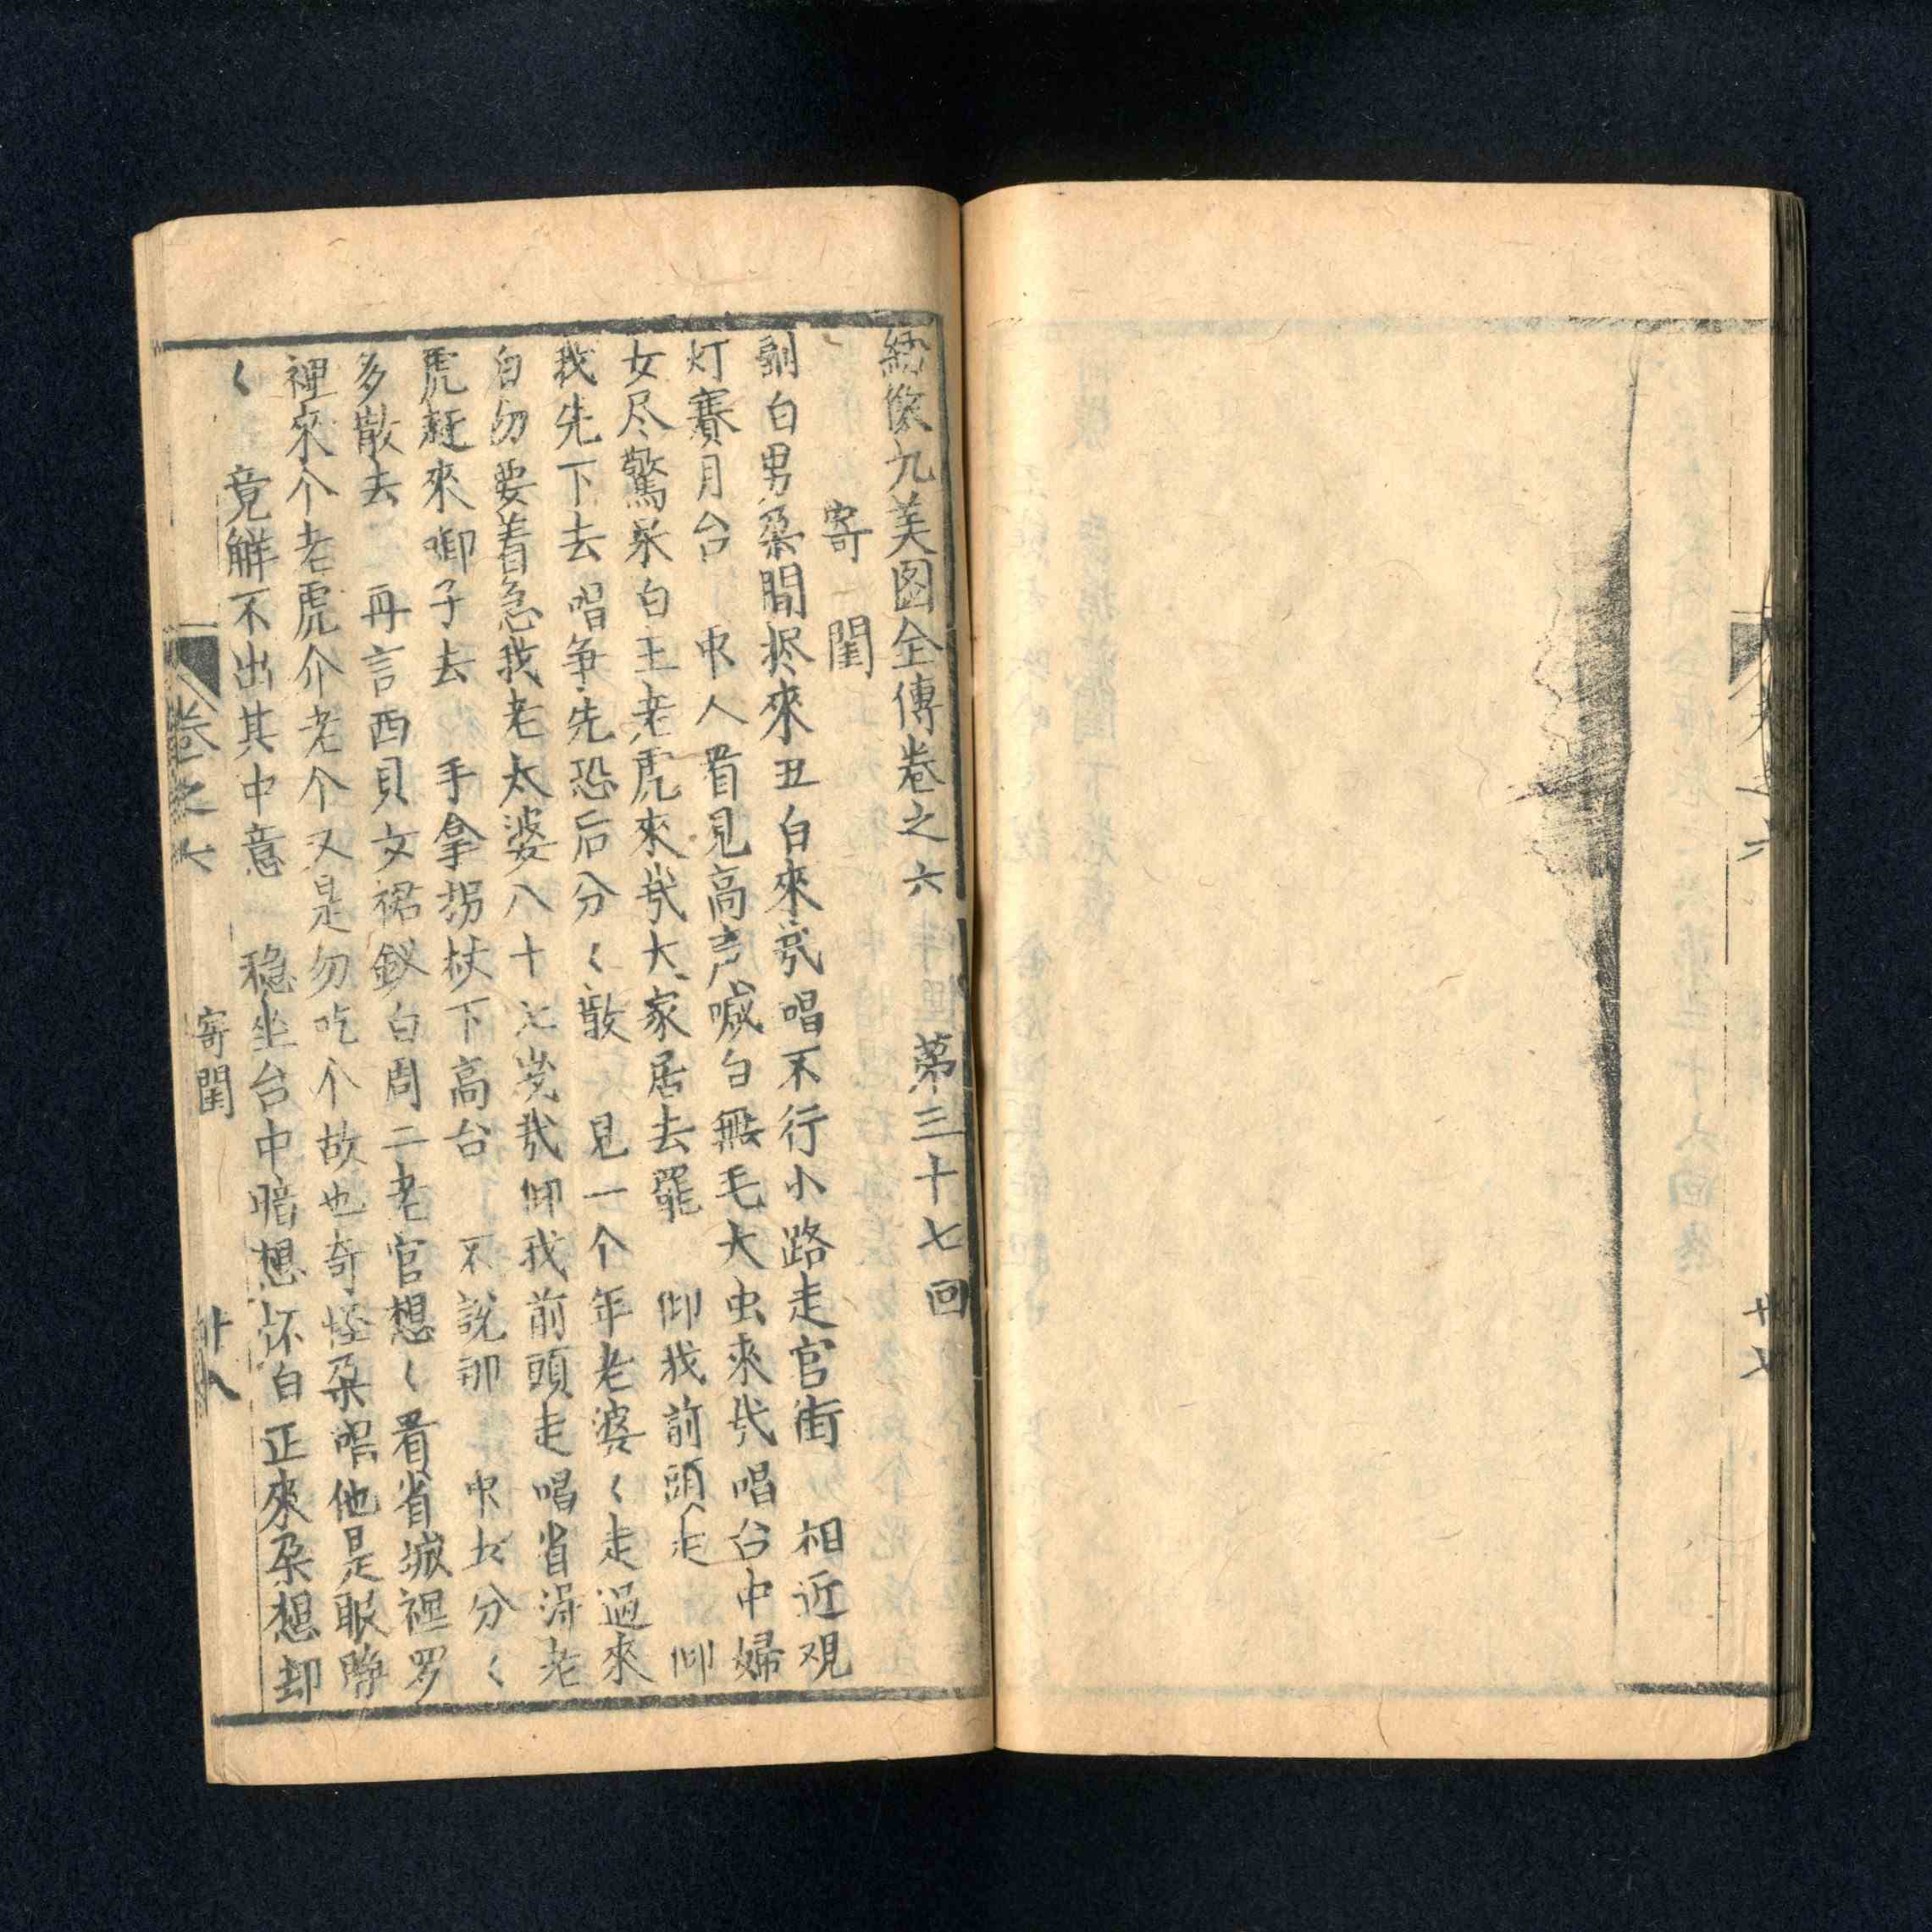 十七
綉像九美图全傳卷之六 第三十七回
寄 閨
剔白男朶閙㧯來丑白來哉唱不行小路走官街 相近观
灯賽月台 中人看見高声喊白無毛大虫來哉唱台中婦
女尽驚呆白王老虎來哉大家居去罷 仰我前頭走 仰
我先下去 唱争先恐后分〱散 見一个年老婆〱走過來
白勿要着急我老太婆八十七岁哉仰我前頭走唱省淂老
虎赶來啣子去 手拿拐杖下高台 不說那 中女分〱
多散去 再言西貝文裙釵白周二老官想〱看省城裡罗
裡來个老虎介老个又是勿吃个故也奇怪朶唱他是眼睁
〱 竟觧不出其中意 稳坐台中暗想怀白正來朶想却
卷之六 寄閨 十八